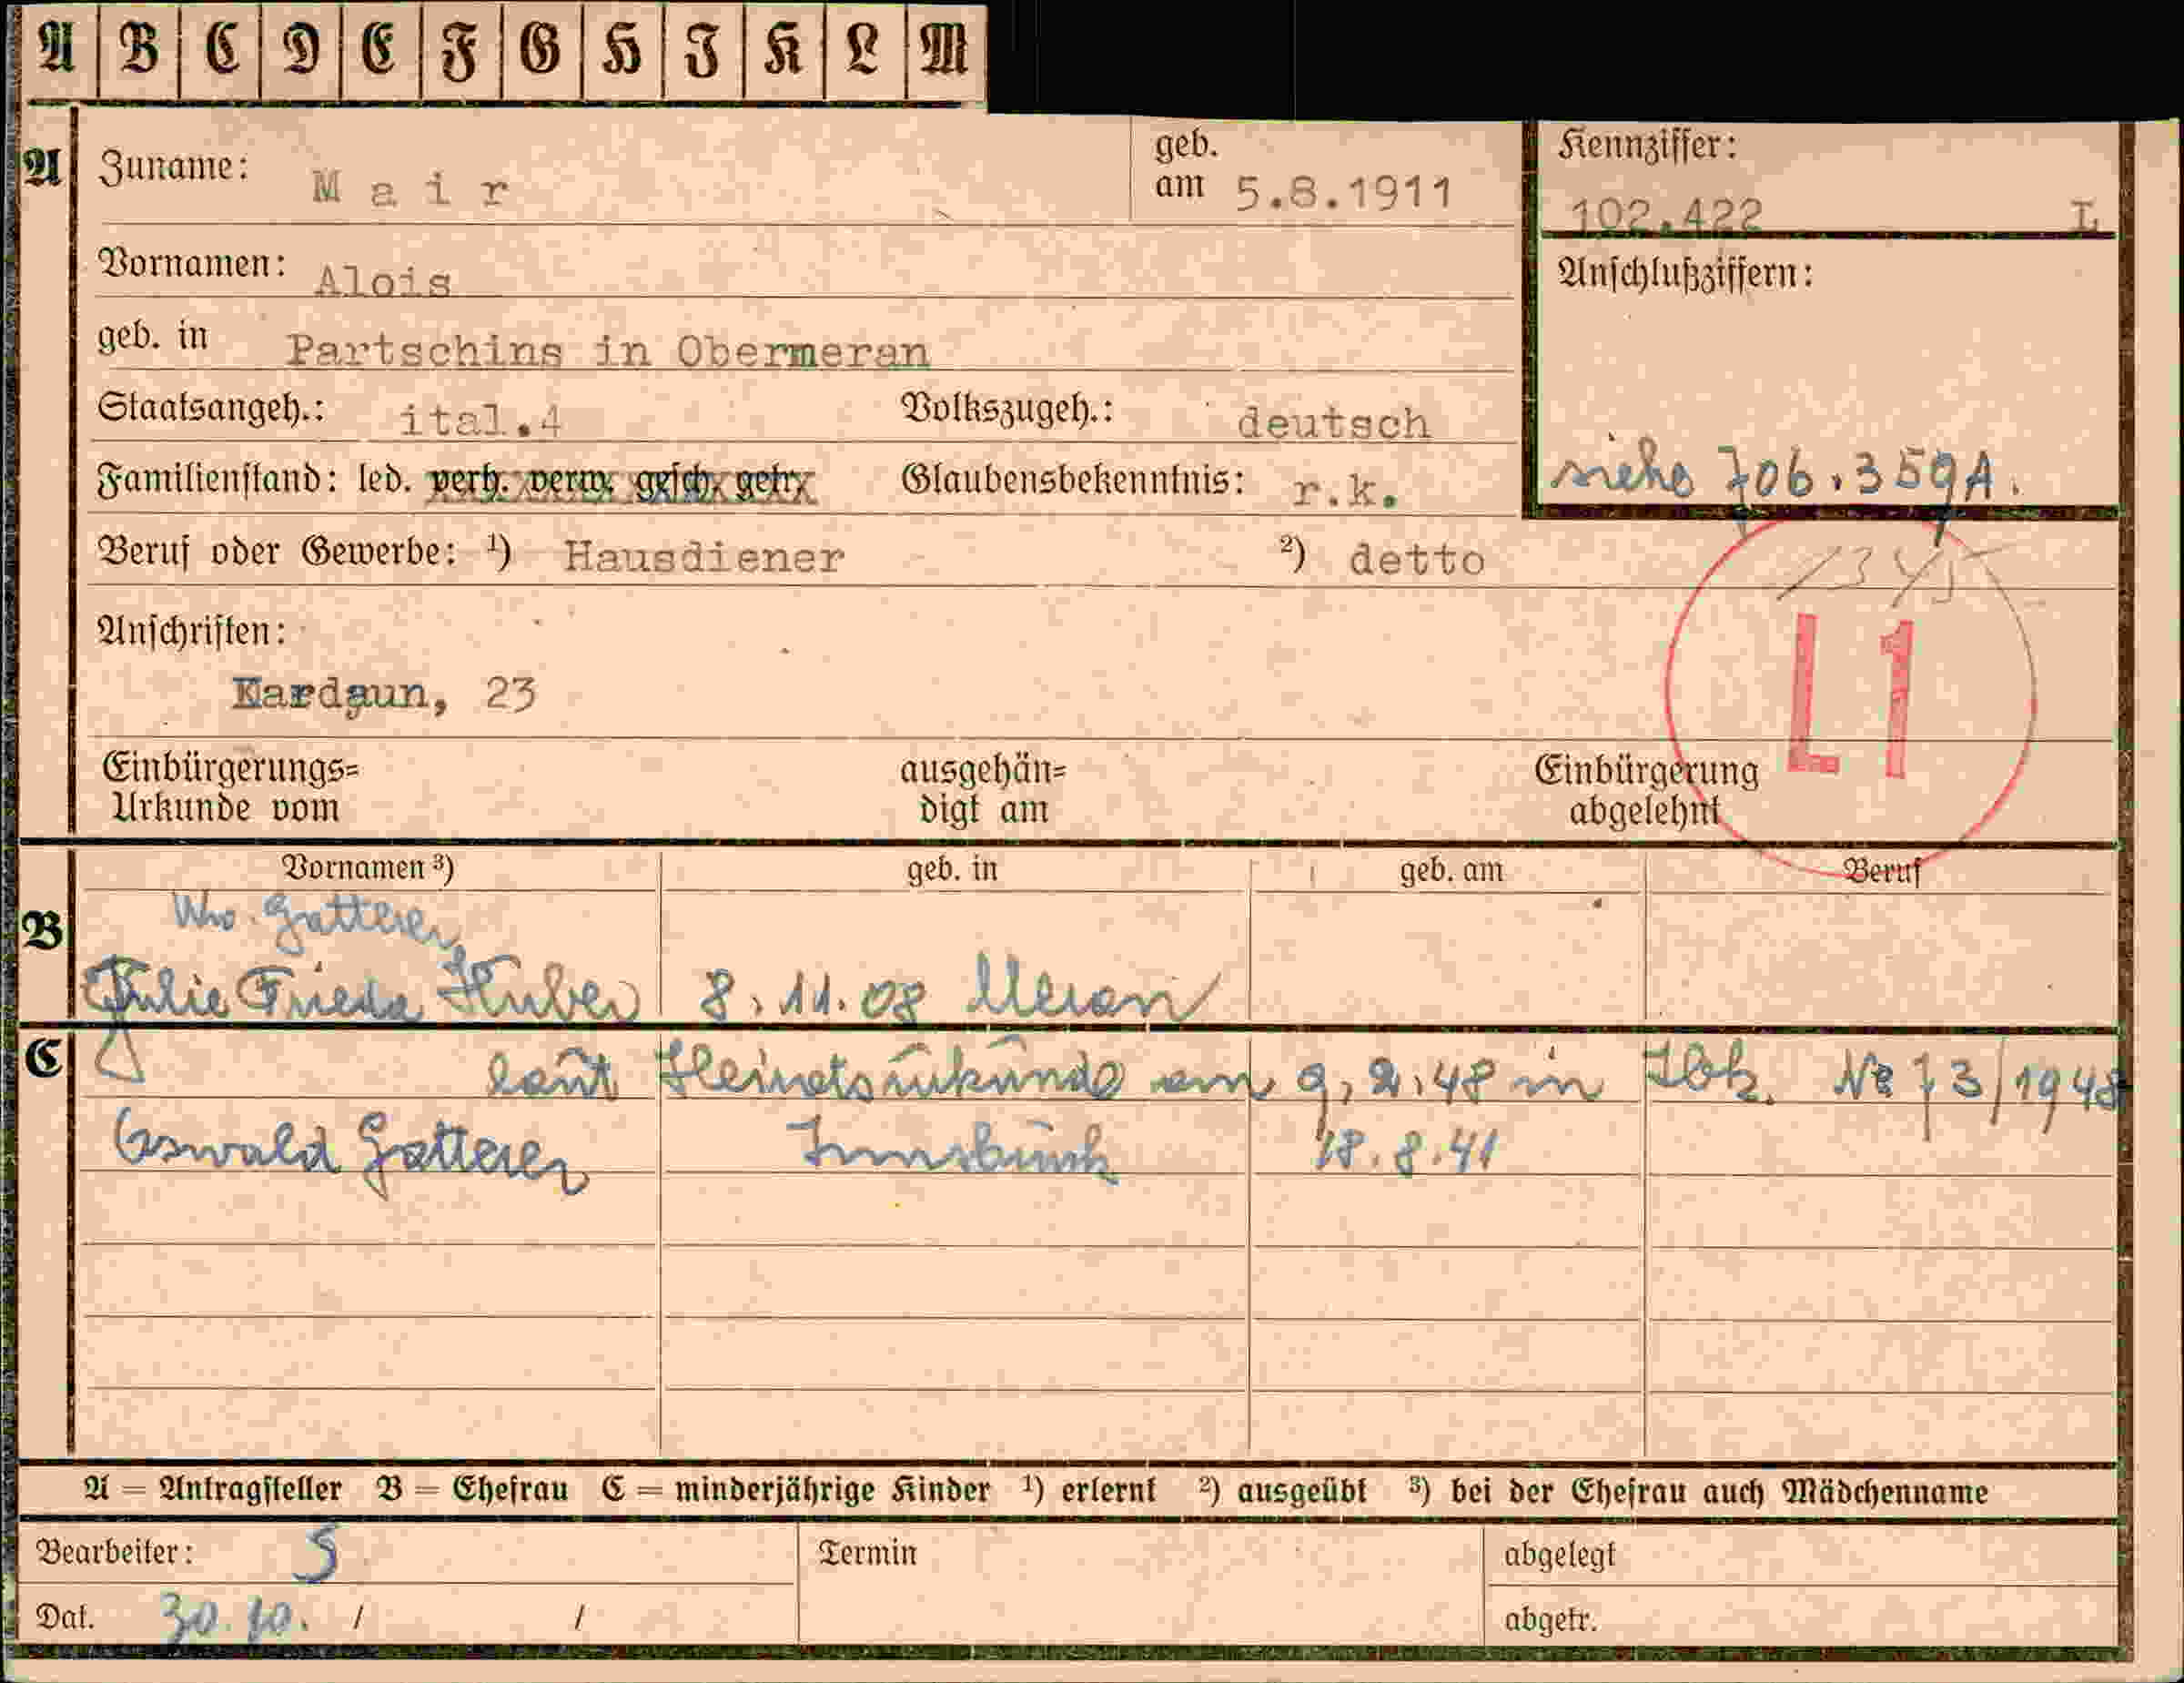 A B C D E F G H I K L M
A Zuname: Mair geb. am 5.8.1911 Kennziffer: 102.422 L
Vornamen: Alois Anschlußziffern:
geb. in Partschins in Obermeran
Staatsangeh.: ital.4 Volkszugeh.: deutsch
Familienstand: led. verh. verw. gesch. getr. Glaubensbekenntnis: r.k. siehe 706.359A.
Beruf oder Gewerbe: ¹) Hausdiener ²) detto
Anschriften:
Kardaun, 23
L1
Einbürgerungs= ausgehän= Einbürgerung
Urkunde vom digt am abgelehnt
Vornamen ³) geb. in geb. am Beruf
B Gatterer
Julie Frieda Huber 8.11.08 Meran
C laut Heiratsurkunde am 9.2.48 in Ibk. No 73/1948
Oswald Gatterer Innsbruck 18.8.41
A = Antragsteller B = Ehefrau C = minderjährige Kinder ¹) erlernt ²) ausgeübt ³) bei der Ehefrau auch Mädchenname
Bearbeiter: S Termin abgelegt
Dat. 30.10. / / abgetr.